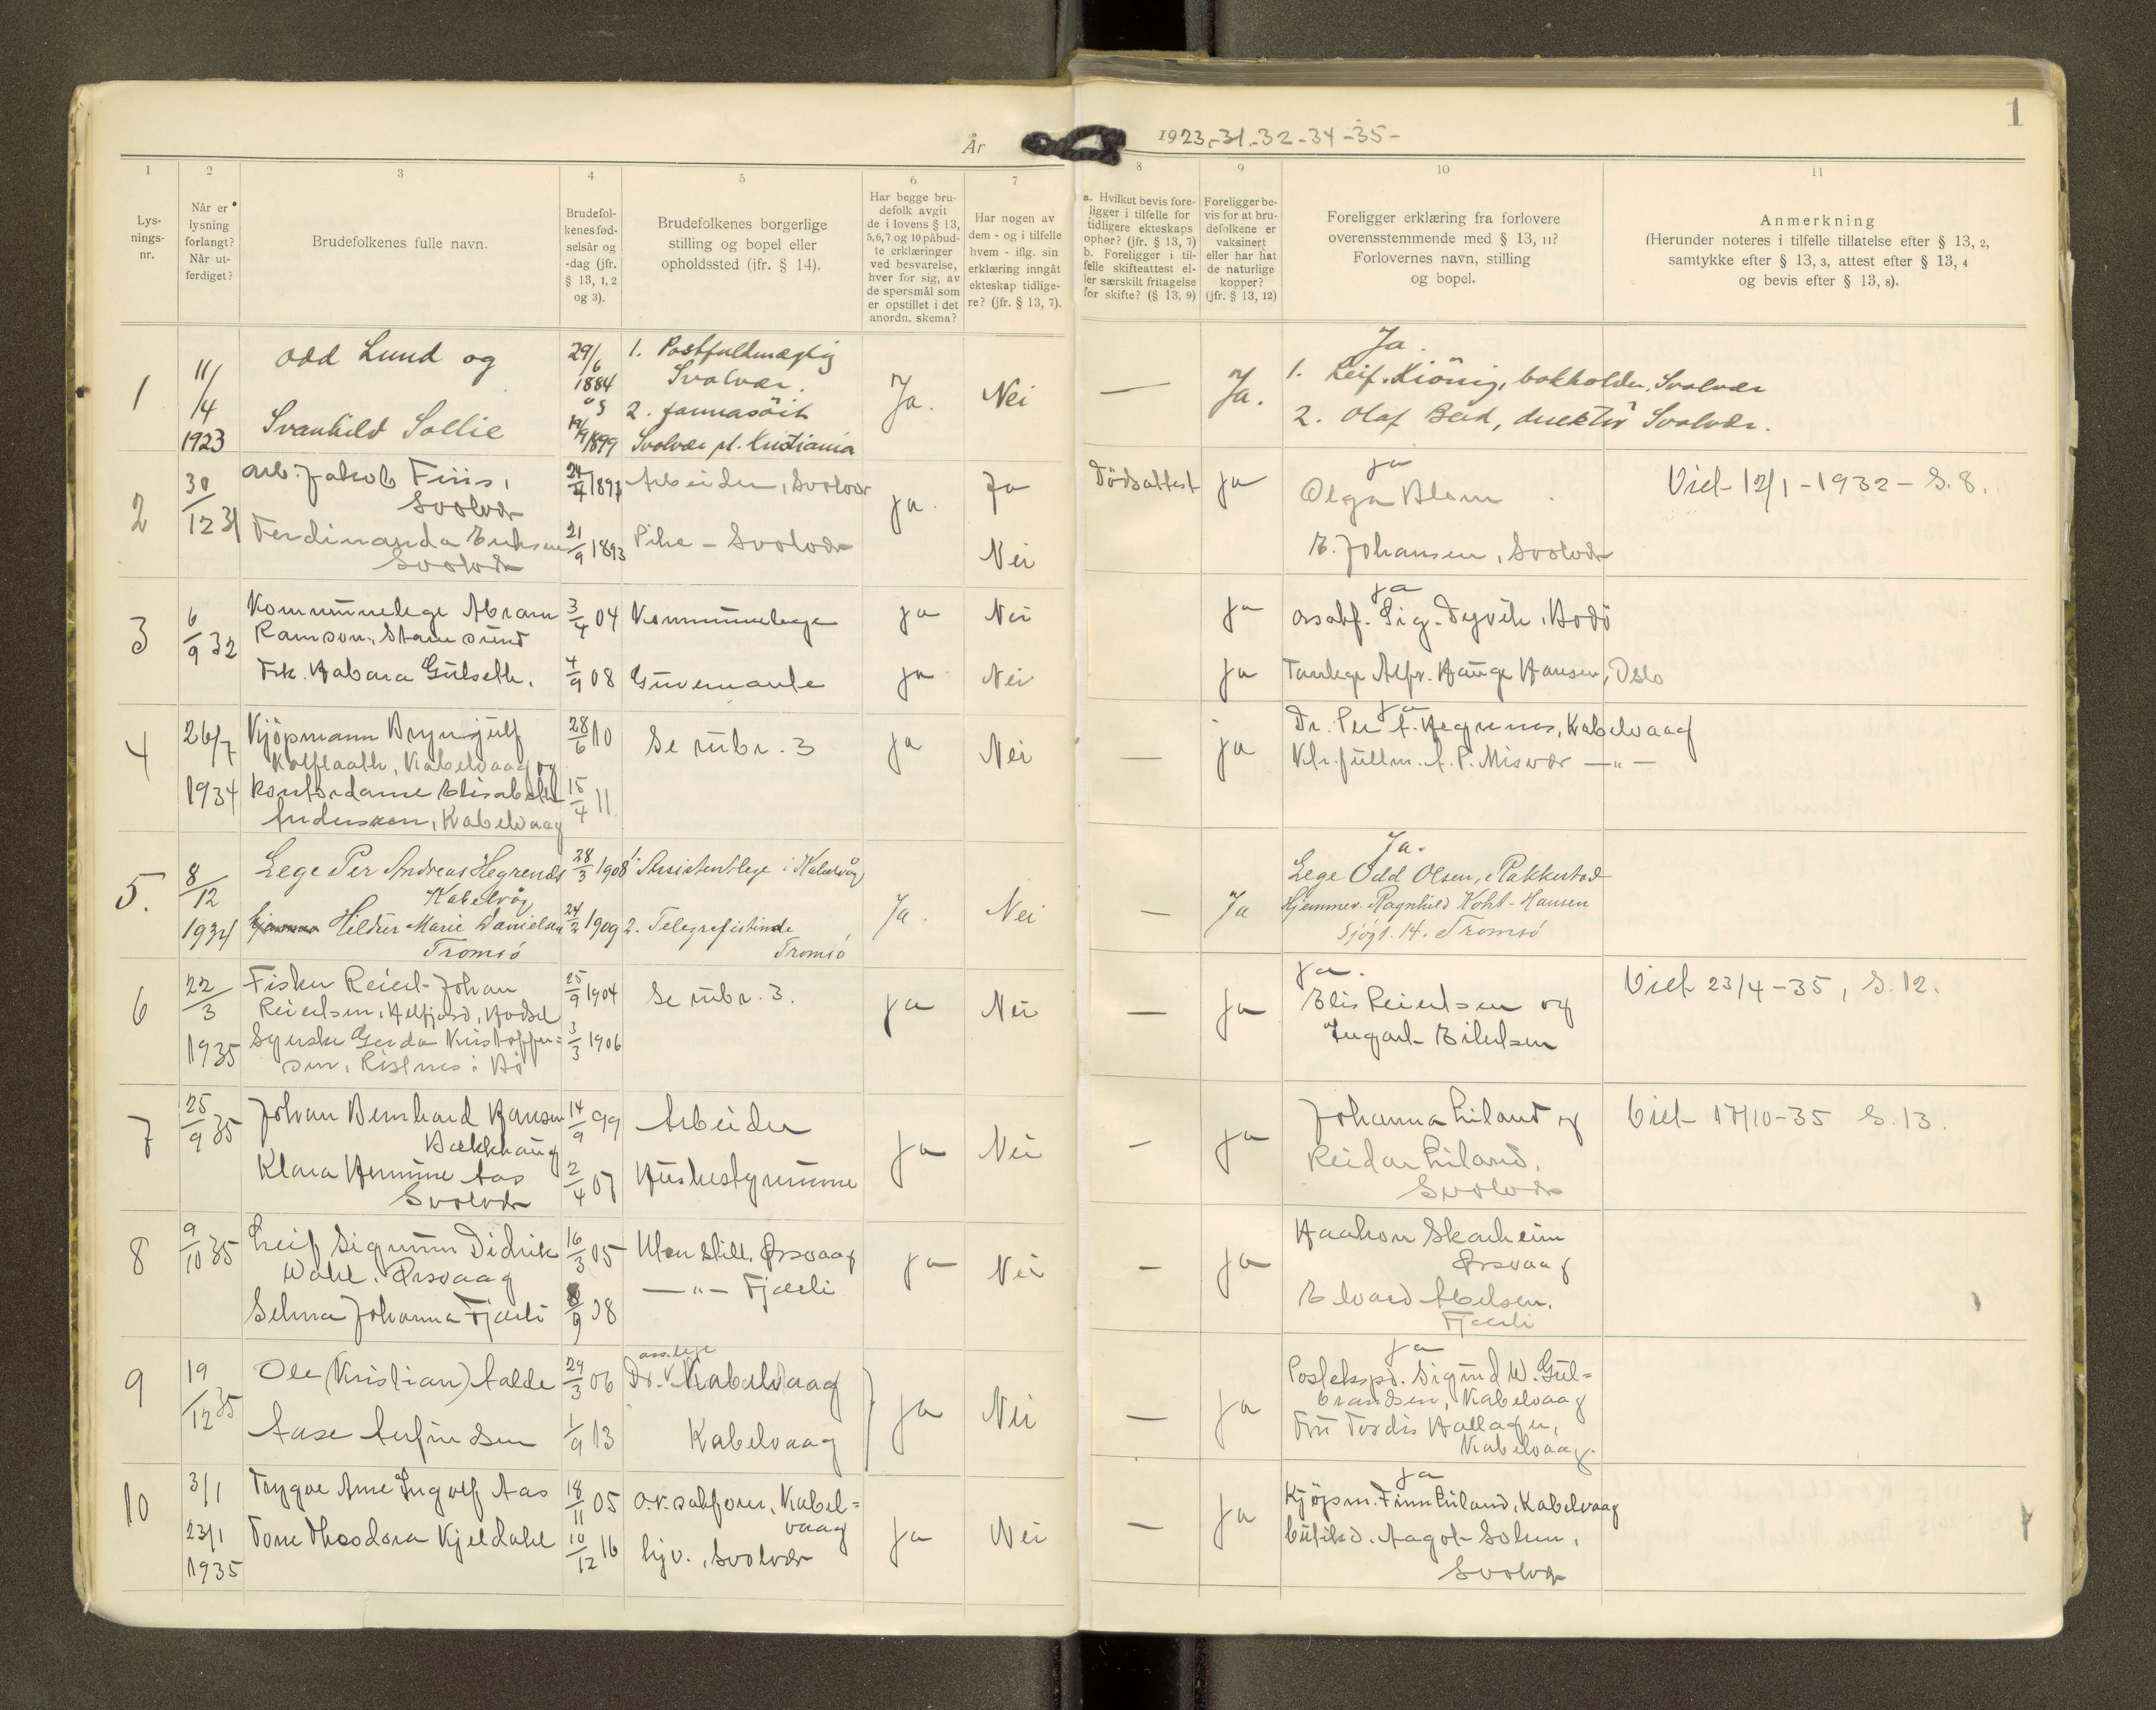 År 1923,-31.-32-34-35-
1
1 2 3 4 5 6 7 8 9 10 11
Lys-
nings-
nr.
Når er
lysning
forlangt?
Når ut-
ferdiget?
Brudefolkenes fulle navn.
Brudefol-
kenes fød-
selsår og
-dag (jfr.
§ 13, 1, 2
og 3).
Brudefolkenes borgerlige
stilling og bopel eller
opholdssted (jfr. § 14).
Har begge bru-
defolk avgit
de i lovens § 13,
5,6,7 og 10 påbud-
te erklæringer
ved besvarelse,
hver for sig, av
de spørsmål som
er opstillet i det
anordn. skema?
Har nogen av
dem - og i tilfelle
hvem - iflg. sin
erklæring inngåt
ekteskap tidlige-
re? (jfr. § 13, 7).
a. Hvilket bevis fore-
ligger i tilfelle for
tidligere ekteskaps
ophør? (jfr. § 13, 7)
b. Foreligger i til-
felle skifteattest el-
ler særskilt fritagelse
for skifte? (§ 13, 9)
Foreligger be-
vis for at bru-
defolkene er
vaksinert
eller har hat
de naturlige
kopper?
(jfr. § 13, 12)
Foreligger erklæring fra forlovere
overensstemmende med § 13, 11?
Forlovernes navn, stilling
og bopel.
Anmerkning
(Herunder noteres i tilfelle tillatelse efter § 13, 2,
samtykke efter § 13, 3, attest efter § 13, 4
og bevis efter § 13, 8).
1
11/
/4
1923
Odd Lund og
Svanhild Sollie
29/6
1884
og
19/9 1899
1. Postfuldmægtig
Svolvær.
2.
Svolvær pt. Kristiania
Ja.
Nei
—
Ja.
Ja.
1. Leif Kiönig, bokholder, Svolvær
2. Olaf direktör Svolvær.
2
30/12 31
Arb. Jakob Friis,
Svolvær
Ferdinanda Eriksen
Svolvær
24/4 1891
21/9 1893
Arbeider, Svolvær
Pike - Svolvær
ja.
Ja
Nei
Dödsattest
ja
ja
Olga Blom
E. Johansen, Svolvær
Viet 12/1 - 1932 - S. 8.
3
6/9 32
Kommunelege Abram
Ramson, Stamsund
Frk. Habara Gulseth.
3/4 04
4/9 08
Kommunelege
Guvernante
ja
ja
Nei
Nei
ja
ja
ja
Osabf. Sig. Dyvik, Bodö
Tanlege Alfr. Hauge Hansen, Oslo
4
26/7
1934
Kjöpmann Brynjulf
Kolflaath, Kabelvaag og
Kontordame Elisabeth
Anderssen, Kabelvaag
28/6 10
15/4 11
Se rubr. 3
ja
Nei
—
ja
ja
Dr. Per A. Hegrenes, Kabelvaag
Ktr.fullm. A. P. Misvær —"—
5.
8/12
1934
Lege Per Andreas Hegrenes
Kabelvåg
Hildur Marie Danielsen
Tromsö
28/3 1908
24/2 1909
1. Assistentlege i Kabelvåg
2. Telegrafistinde
Tromsö
Ja.
Nei
—
Ja
Ja.
Lege Odd Olsen, Rakkestad
Hjemmev. Ragnhild Koht-Hansen
Sjøgt. 14. Tromsö
6
22/3
1935
Fisker Reiert Johan
Reiertsen, Melfjord, Hadsel
Syerske Gerda Kristoffer=
sen, Ristnes i Bö
25/9 1904
3/3 1906
Se rubr. 3.
ja
Nei
—
ja
ja.
Elis Reiertsen og
Ingart Eilertsen
Viet 23/4 - 35, S. 12.
7
25/9 35
Johan Bernhard Hansen
Bakkhaug
Klara Hermine Aas
Svolvær
14/9 99
2/4 07
Arbeider
Husbestyrerinne
ja
Nei
-
ja
Johanna Liland og
Reidar Liland,
Svolvær
Viet 17/10-35 S. 13.
8
9/10 35
Leif Sigmunn Didrik
Wahl, Ørsvaag
Selma Johanna Fjærli
16/3 05
8/9 08
Uten still. Ørsvaag
—"— Fjærli
ja
Nei
-
ja
Haakon Skarheim
Ørsvaag
Edvard Abelsen.
Fjærli
9
19/12 35
Ole (Kristian) Aalde
Aase Arfinsen
29/3 06
1/9 13
ass. lege
Dr. Kabelvaag
Kabelvaag
ja
Nei
—
ja
ja
Postekspd. Sigurd W. Gul=
brandsen, Kabelvaag
Fru Tordis Hallager,
Kabelvaag.
10
3/1
23/1
1935
Trygve Arne Ingolf Aas
Tone Theodora Kjeldahl
18/11 05
10/12 16
o.r.sakförer, Kabel=
vaag
hjv., Svolvær
ja
Nei
—
ja
ja
Kjöpm. Finn Liland, Kabelvaag
butikd. Aagot Solem,
Svolvær